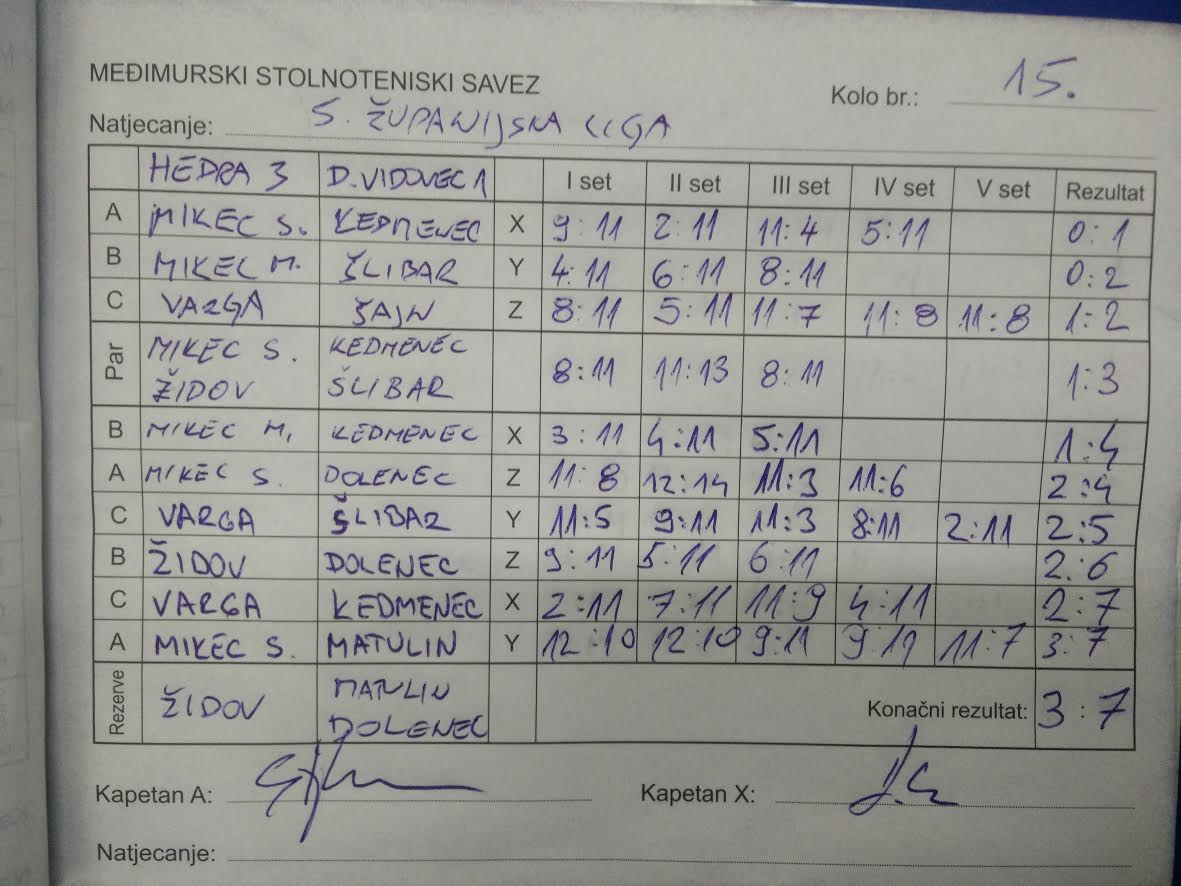 MEĐIMURSKI STOLNOTENISKI SAVEZ
Kolo br.: 15.
Natjecanje: 5. ŽUPANIJSKA LIGA
HEDRA 3 D.VIDOVEC 1 I set II set III set IV set V set Rezultat
A MIKEC S. KEDMENEC X 9:11 2:11 11:4 5:11 0:1
B MIKEC M. ŠLIBAR Y 4:11 6:11 8:11 0:2
C VARGA ŠAJN Z 8:11 5:11 11:7 11:8 11:8 1:2
Par MIKEC S. KEDMENEC
ŽIDOV ŠLIBAR 8:11 11:13 8:11 1:3
B MIKEC M. KEDMENEC X 3:11 4:11 5:11 1:4
A MIKEC S. DOLENEC Z 11:8 12:14 11:3 11:6 2:4
C VARGA ŠLIBAR Y 11:5 9:11 11:3 8:11 2:11 2:5
B ŽIDOV DOLENEC Z 9:11 5:11 6:11 2:6
C VARGA KEDMENEC X 2:11 7:11 11:9 4:11 2:7
A MIKEC S. MATULIN Y 12:10 12:10 9:11 9:11 11:7 3:7
Rezerve ŽIDOV MATULIN
DOLENEC Konačni rezultat: 3:7
Kapetan A: Kapetan X:
Natjecanje: